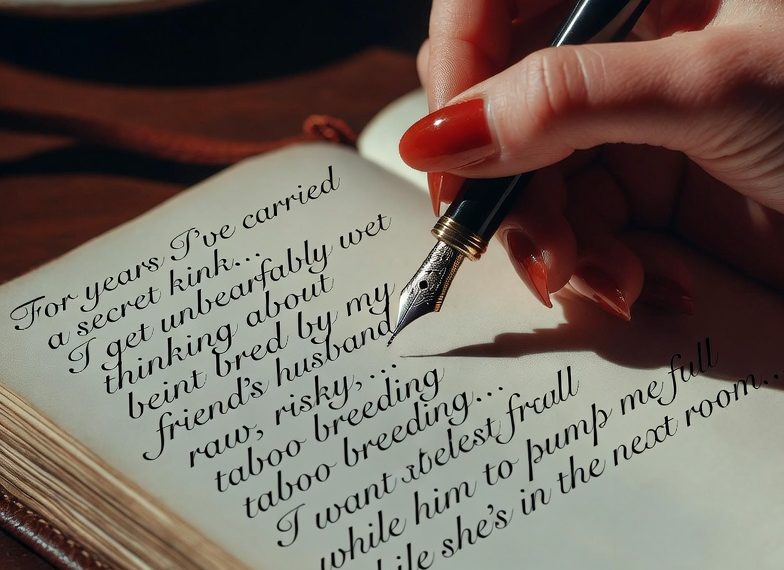 For years I've carried
a secret kink...
I get unbearfably wet
thinking about
beint bred by my
friend's husband
raw, risky, ...
taboo breeding
taboo breeding...
I want xtelest frcall
while him to pump me full
while she's in the next room...